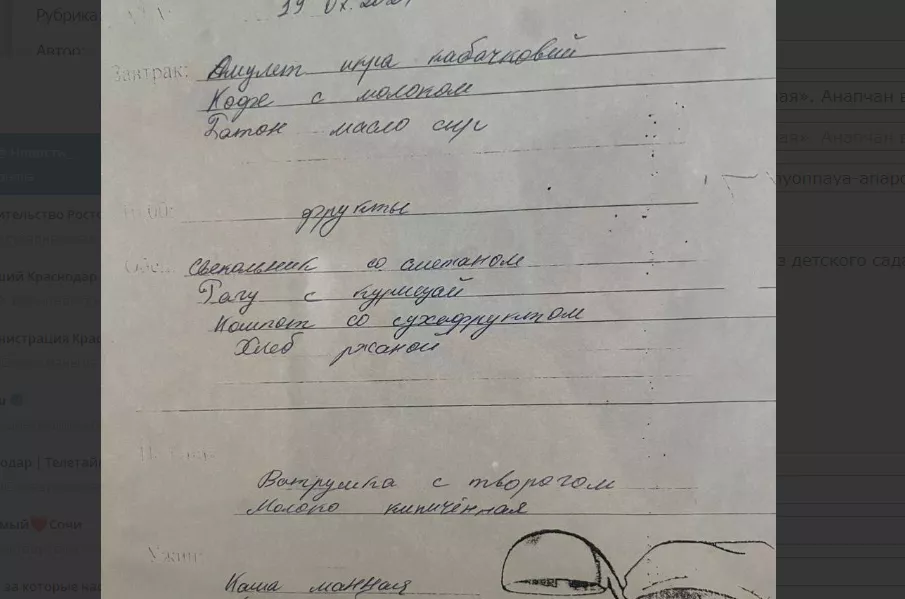 Рубрика:
Автор:
19 IX. 202
Завтрак: Омулет икра кабачковий
Кофе с молоком
Батон масло сир
фрукты
Обе
Свекольник со сметаном
Рагу с курицай
Компот со сухофруктом
Хлеб ржаной
Ватрушка с творогом
Молоко кипичённая
Ужин:
Каша манная
ительство Росто
ший Краснодар
нистрация Крас
одар | Телетайп
мый❤Сочи
за которые нас
ая». Анапчан в
ая». Анапчан в
nyonnaya-anapc
з детского сада